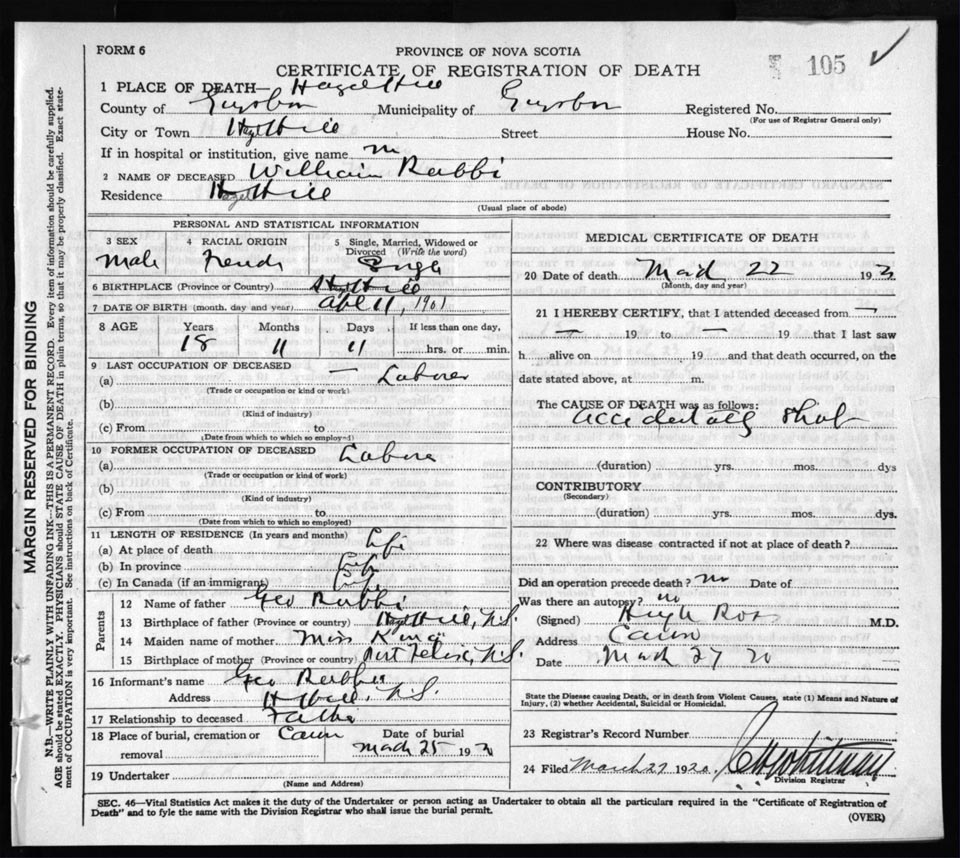 FORM 6
PROVINCE OF NOVA SCOTIA
105
CERTIFICATE OF REGISTRATION OF DEATH
1 PLACE OF DEATH— Hazel Hill
County of Guysboro Municipality of Guysboro Registered No.
(For use of Registrar General only)
City or Town Hazel Hill Street House No.
If in hospital or institution, give name
2 NAME OF DECEASED William Rabbi
Residence Hazel Hill
(Usual place of abode)
PERSONAL AND STATISTICAL INFORMATION
3 SEX 4 RACIAL ORIGIN 5 Single, Married, Widowed or Divorced (Write the word)
Male French Single
6 BIRTHPLACE (Province or Country) Hazel Hill
7 DATE OF BIRTH (month, day and year) Apl 11, 1901
8 AGE Years Months Days If less than one day,
18 11 11 hrs. or min.
9 LAST OCCUPATION OF DECEASED
(a) — Laborer
(Trade or occupation or kind of work)
(b)
(Kind of industry)
(c) From to
(Date from which to which so employed)
10 FORMER OCCUPATION OF DECEASED
(a) Labore
(Trade or occupation or kind of work)
(b)
(Kind of industry)
(c) From to
(Date from which to which so employed)
11 LENGTH OF RESIDENCE (In years and months)
(a) At place of death Life
(b) In province Life
(c) In Canada (if an immigrant) Life
Parents
12 Name of father Geo Rabbi
13 Birthplace of father (Province or country) Hazel Hill, N.S.
14 Maiden name of mother Miss King
15 Birthplace of mother (Province or country) Port Felix, N.S.
16 Informant's name Geo Rabbi
Address H Hill, N.S.
17 Relationship to deceased Father
18 Place of burial, cremation or removal Canso Date of burial March 25 192
19 Undertaker
(Name and Address)
MEDICAL CERTIFICATE OF DEATH
20 Date of death March 22 192
(Month, day and year)
21 I HEREBY CERTIFY, that I attended deceased from —
— 19 to — 19 that I last saw
h alive on 19 and that death occurred, on the
date stated above, at m.
The CAUSE OF DEATH was as follows:
accidentally shot
(duration) yrs. mos. dys
CONTRIBUTORY
(Secondary)
(duration) yrs. mos. dys.
22 Where was disease contracted if not at place of death?
Did an operation precede death? no Date of
Was there an autopsy? no
(Signed) Hugh Ross M.D.
Address Canso
Date March 27 20
State the Disease causing Death, or in death from Violent Causes, state (1) Means and Nature of
Injury, (2) whether Accidental, Suicidal or Homicidal.
23 Registrar's Record Number
24 Filed March 27 1920 Whitman
Division Registrar
SEC. 46—Vital Statistics Act makes it the duty of the Undertaker or person acting as Undertaker to obtain all the particulars required in the "Certificate of Registration of
Death" and to fyle the same with the Division Registrar who shall issue the burial permit.
(OVER)
MARGIN RESERVED FOR BINDING
N.B.—WRITE PLAINLY WITH UNFADING INK—THIS IS A PERMANENT RECORD. Every item of information should be carefully supplied.
AGE should be stated EXACTLY. PHYSICIANS should STATE CAUSE OF DEATH in plain terms, so that it may be properly classified. Exact state-
ment of OCCUPATION is very important. See instructions on back of Certificate.